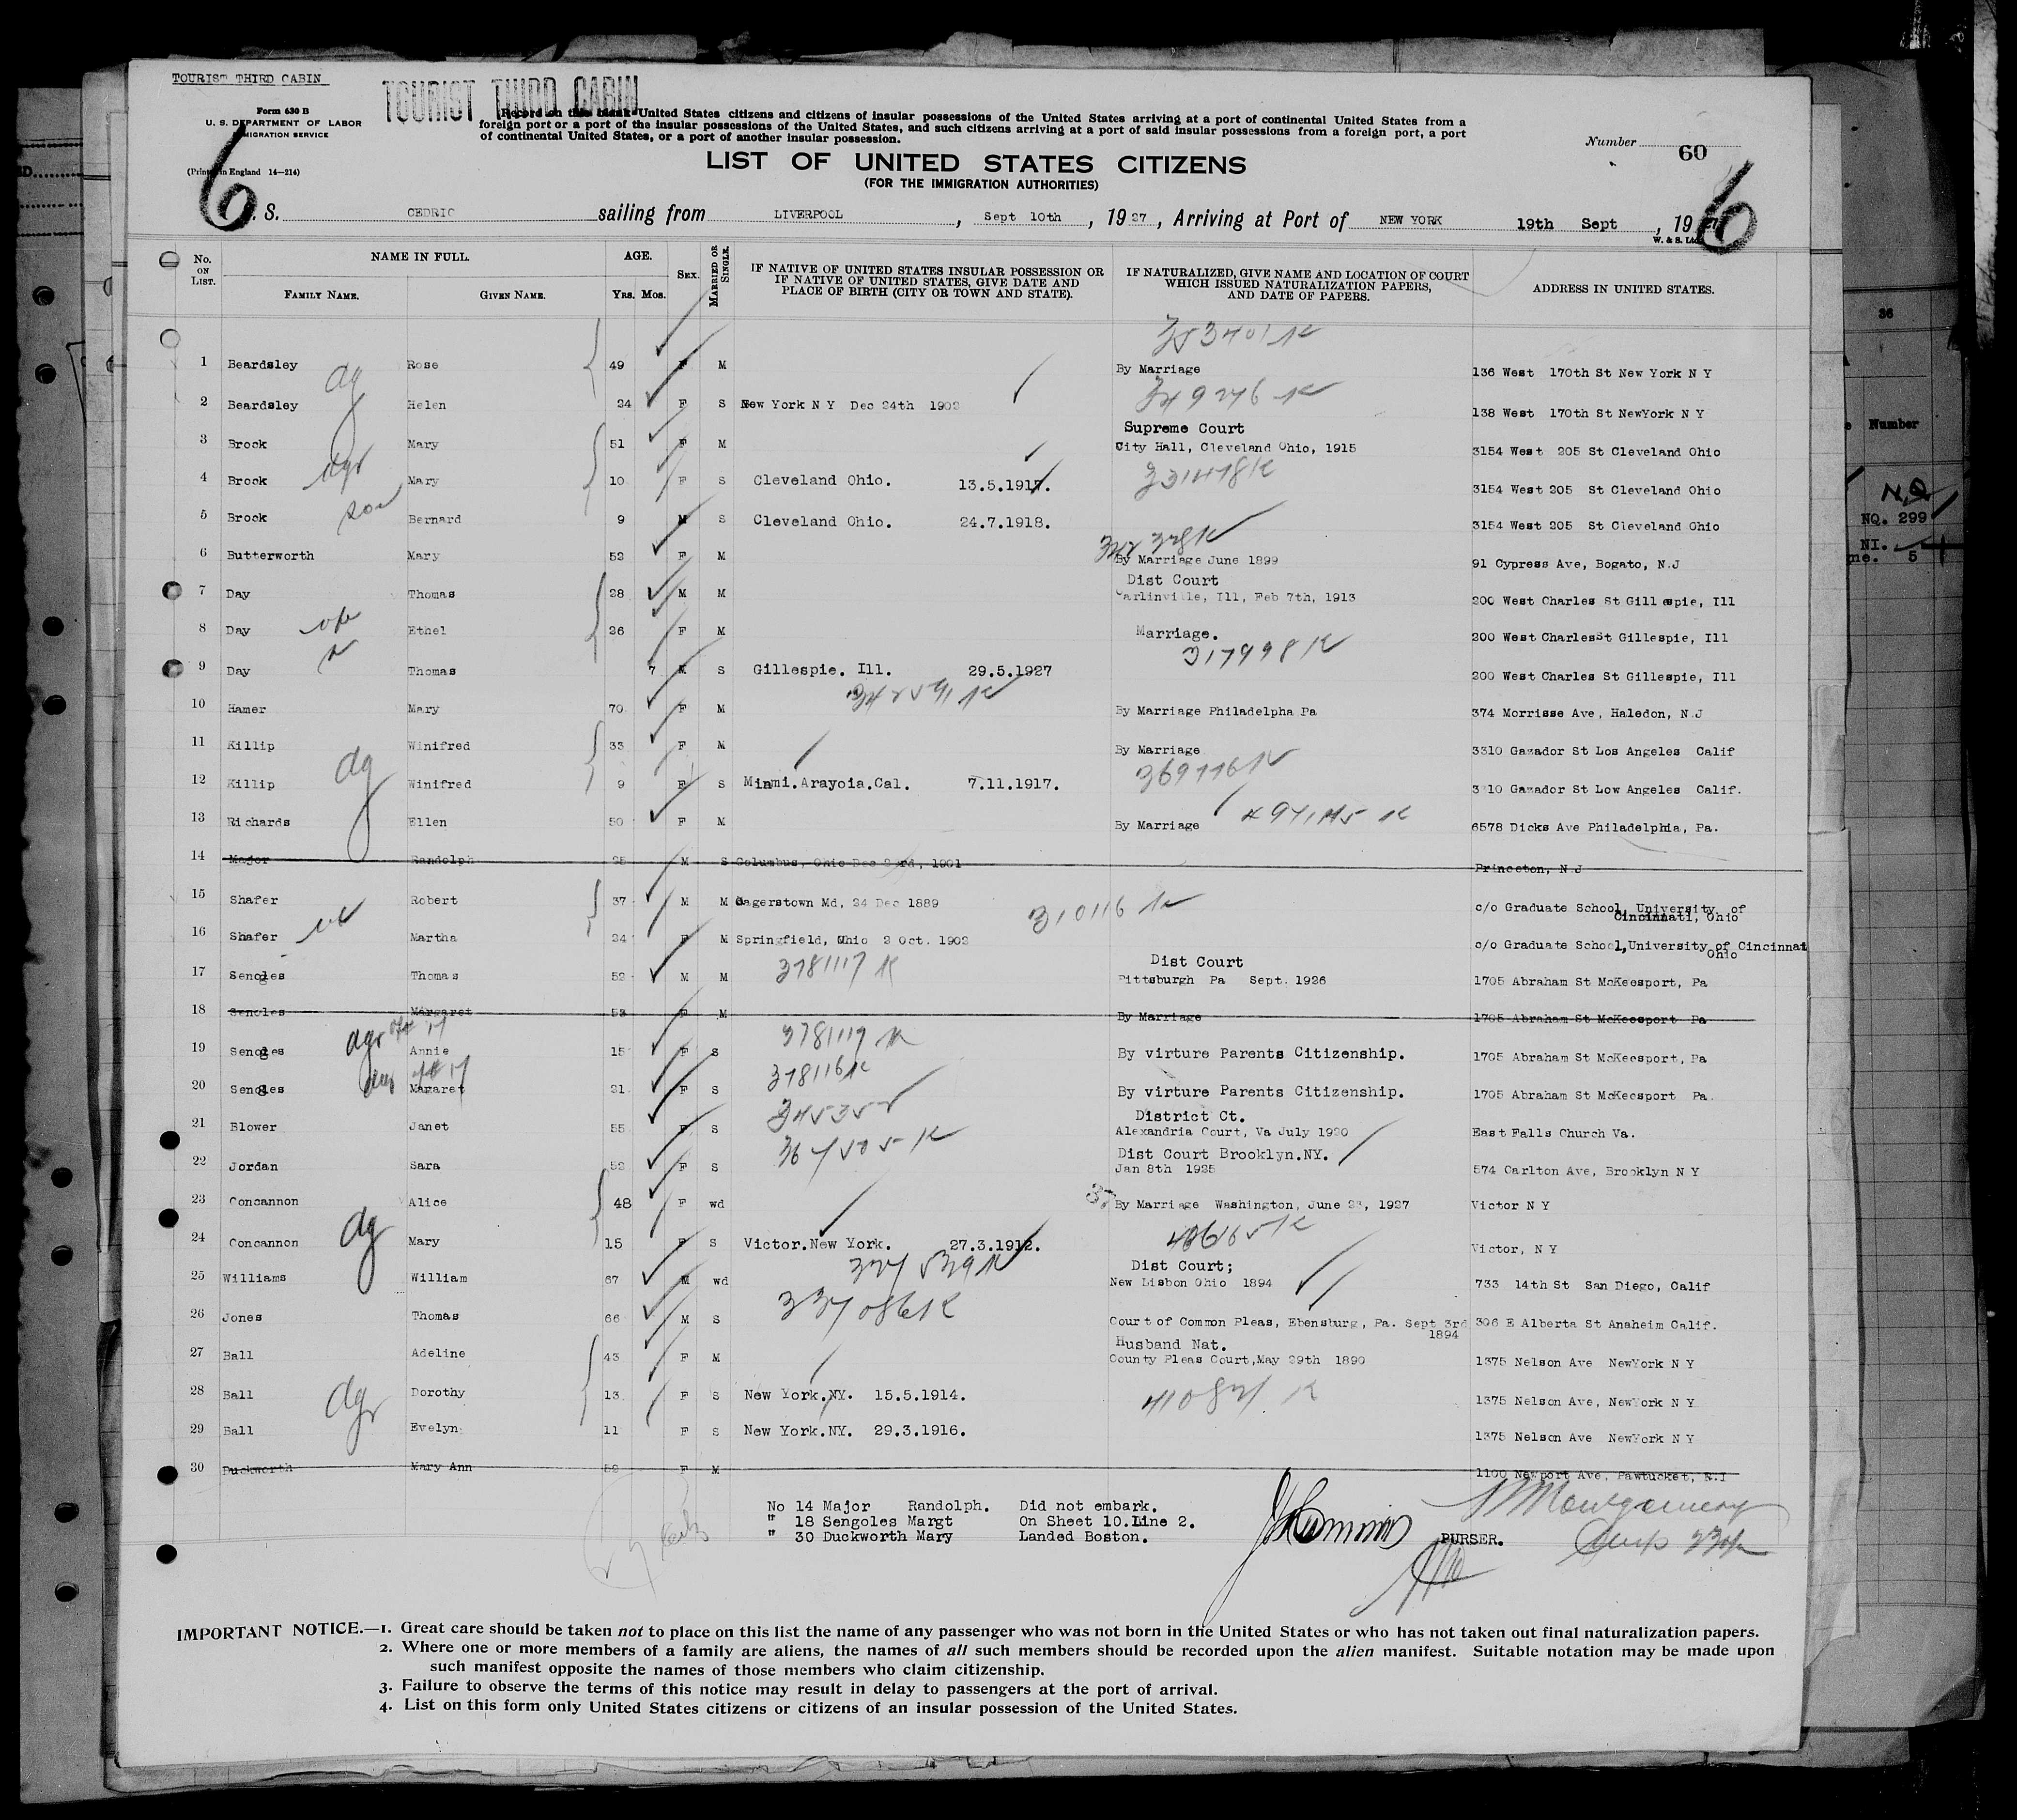 TOURIST THIRD CABIN
TOURIST THIRD CABIN
Form 630 B
U. S. DEPARTMENT OF LABOR
IMMIGRATION SERVICE
Record on this blank United States citizens and citizens of insular possessions of the United States arriving at a port of continental United States from a
foreign port or a port of the insular possessions of the United States, and such citizens arriving at a port of said insular possessions from a foreign port, a port
of continental United States, or a port of another insular possession.
Number 60
LIST OF UNITED STATES CITIZENS
(FOR THE IMMIGRATION AUTHORITIES)
(Printed in England 14—214)
6 S. CEDRIC sailing from LIVERPOOL, Sept 10th, 1927, Arriving at Port of NEW YORK 19th Sept, 19 6
W. & S. Ltd
No. ON LIST. NAME IN FULL. FAMILY NAME. GIVEN NAME. AGE. Yrs. Mos. SEX. MARRIED OR SINGLE. IF NATIVE OF UNITED STATES INSULAR POSSESSION OR IF NATIVE OF UNITED STATES, GIVE DATE AND PLACE OF BIRTH (CITY OR TOWN AND STATE). IF NATURALIZED, GIVE NAME AND LOCATION OF COURT WHICH ISSUED NATURALIZATION PAPERS, AND DATE OF PAPERS. ADDRESS IN UNITED STATES.
1 Beardsley Rose 49 F M By Marriage 136 West 170th St New York N Y
2 Beardsley Helen 24 F S New York N Y Dec 24th 1902 138 West 170th St NewYork N Y
3 Brook Mary 51 F M Supreme Court City Hall, Cleveland Ohio, 1915 3154 West 205 St Cleveland Ohio
4 Brook Mary 10 F S Cleveland Ohio. 13.5.1917. 3154 West 205 St Cleveland Ohio
5 Brook Bernard 9 M S Cleveland Ohio. 24.7.1918. 3154 West 205 St Cleveland Ohio
6 Butterworth Mary 52 F M By Marriage June 1899 91 Cypress Ave, Bogato, N.J
7 Day Thomas 28 M M Dist Court Carlinville, Ill, Feb 7th, 1913 200 West Charles St Gillespie, Ill
8 Day Ethel 26 F M Marriage. 200 West CharlesSt Gillespie, Ill
9 Day Thomas 7 M S Gillespie. Ill. 29.5.1927 200 West Charles St Gillespie, Ill
10 Hamer Mary 70 F M By Marriage Philadelpha Pa 374 Morrisse Ave, Haledon, N.J
11 Killip Winifred 33 F M By Marriage 3310 Gazador St Los Angeles Calif
12 Killip Winifred 9 F S Miami.Arayoia.Cal. 7.11.1917. 3310 Gazador St Low Angeles Calif.
13 Richards Ellen 50 F M By Marriage 6578 Dicks Ave Philadelphia, Pa.
14 Major Randolph 25 M S Columbus, Ohio Dec 23rd, 1901 Princeton, N J
15 Shafer Robert 37 M M Hagerstown Md, 24 Dec 1889 c/o Graduate School, University of Cincinnati, Ohio
16 Shafer Martha 24 F M Springfield, Ohio 2 Oct. 1902 c/o Graduate School,University of Cincinnat Ohio
17 Sengles Thomas 52 M M Dist Court Pittsburgh Pa Sept. 1926 1705 Abraham St McKeesport, Pa
18 Sengles Margaret 52 F M By Marriage 1705 Abraham St McKeesport Pa
19 Sengles Annie 15 F S By virture Parents Citizenship. 1705 Abraham St McKeesport, Pa
20 Sengles Margaret 21 F S By virture Parents Citizenship. 1705 Abraham St McKeesport Pa.
21 Blower Janet 55 F S District Ct. Alexandria Court, Va July 1920 East Falls Church Va.
22 Jordan Sara 52 F S Dist Court Brooklyn.NY. Jan 8th 1925 574 Carlton Ave, Brooklyn N Y
23 Concannon Alice 48 F wd By Marriage Washington, June 23, 1927 Victor N Y
24 Concannon Mary 15 F S Victor.New York. 27.3.1912. Victor, N Y
25 Williams William 67 M wd Dist Court; New Lisbon Ohio 1894 733 14th St San Diego, Calif
26 Jones Thomas 66 M S Court of Common Pleas, Ebensburg, Pa. Sept 3rd 1894 306 E Alberta St Anaheim Calif.
27 Ball Adeline 43 F M Husband Nat. County Pleas Court,May 29th 1890 1375 Nelson Ave NewYork N Y
28 Ball Dorothy 13 F S New York.NY. 15.5.1914. 1375 Nelson Ave, NewYork N Y
29 Ball Evelyn 11 F S New York.NY. 29.3.1916. 1375 Nelson Ave NewYork N Y
30 Duckworth Mary Ann 52 F M 1100 Newport Ave, Pawtucket, R.I
No 14 Major Randolph. Did not embark.
" 18 Sengoles Margt On Sheet 10.Line 2.
" 30 Duckworth Mary Landed Boston.
PURSER.
IMPORTANT NOTICE.—1. Great care should be taken not to place on this list the name of any passenger who was not born in the United States or who has not taken out final naturalization papers.
2. Where one or more members of a family are aliens, the names of all such members should be recorded upon the alien manifest. Suitable notation may be made upon
such manifest opposite the names of those members who claim citizenship.
3. Failure to observe the terms of this notice may result in delay to passengers at the port of arrival.
4. List on this form only United States citizens or citizens of an insular possession of the United States.
36
Number
N.Q
NQ. 299
NI.
me. 5